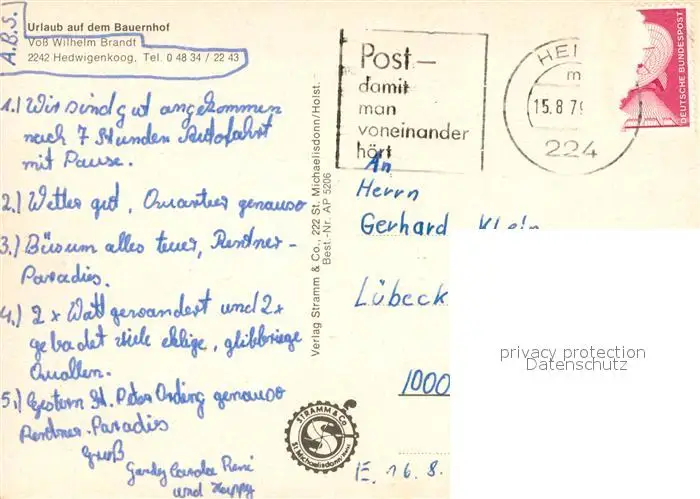 A.B.S.
Urlaub auf dem Bauernhof
Voß Wilhelm Brandt
2242 Hedwigenkoog, Tel. 0 48 34 / 22 43
1.) Wir sind gut angekommen
nach 7 Stunden Autofahrt
mit Pause.
2.) Wetter gut, Quartier genauso
3.) Büsum alles teuer, Rentner-
Paradies.
4.) 2 x Watt gewandert und 2 x
gebadet viele eklige, glibbriege
Quallen.
5.) Gestern St. Peter Ording genauso
Rentner-Paradies
Gruß
Carola René
und Happy
Verlag Stramm & Co., 222 St. Michaelisdonn/Holst.
Best.-Nr. AP 5206
STRAMM & Co.
St. Michaelisdonn
Post-
damit
man
voneinander
hört
HEI
m
15.8.79
224
DEUTSCHE BUNDESPOST
An
Herrn
Gerhard Klein
Lübeck
1000
E. 16.8.
privacy protection
Datenschutz